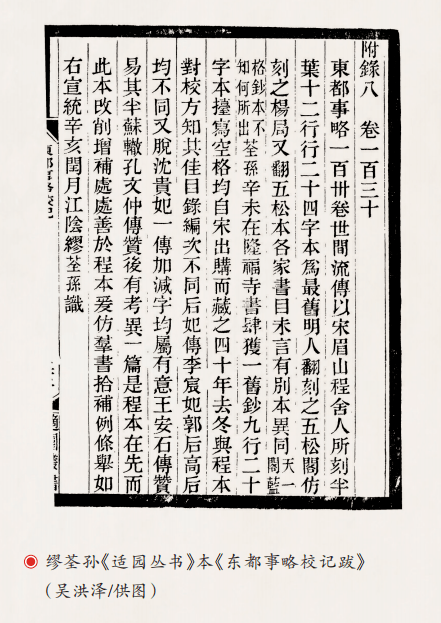 附錄八 卷一百三十
東都事略一百卅卷世間流傳以宋眉山程舍人所刻半
葉十二行行二十四字本為最舊明人翻刻之五松閣仿
刻之楊局又翻五松本各家書目未言有別本異同天一閣藍
格鈔本不知何所出荃孫辛未在隆福寺書肆獲一舊鈔九行二十
字本擡寫空格均自宋出購而藏之四十年去冬與程本
對校方知其佳目錄編次不同后妃傳李宸妃郭后高后
均不同又脫沈貴妃一傳加減字均屬有意王安石傳贊
易其半蘇轍孔文仲傳贊後有考異一篇是程本在先而
此本改削增補處處善於程本爰仿羣書拾補例條舉如
右宣統辛亥閏月江陰繆荃孫識
適園叢書
缪荃孙《适园丛书》本《东都事略校记跋》
（吴洪泽/供图）